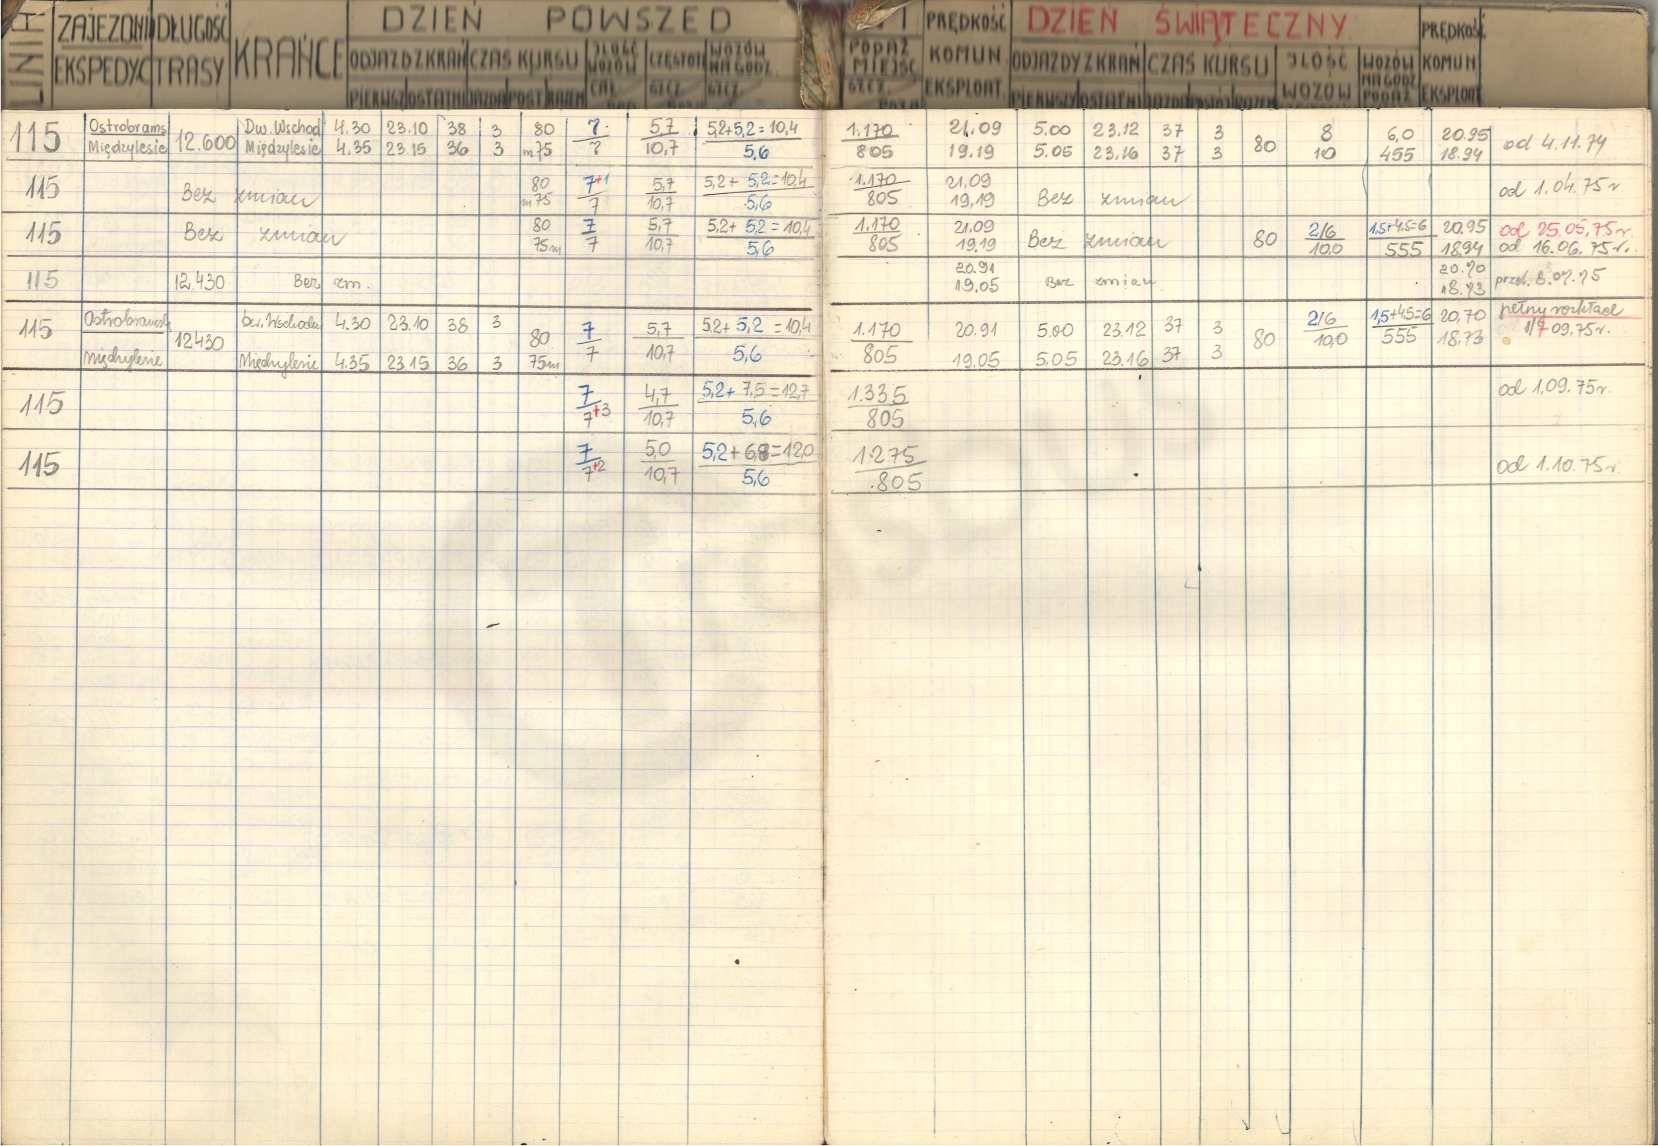 LINIA ZAJEZDNI DŁUGOŚĆ KRAŃCE DZIEŃ POWSZED NI PRĘDKOŚĆ DZIEŃ ŚWIĄTECZNY. PRĘDKOŚĆ
EKSPEDYC TRASY ODJAZD Z KRAŃ CZAS KURSU JLOŚĆ WOZÓW CZĘSTOTL WOZÓW NA GODZ. POPAŻ MIEJSC KOMUN ODJAZDY Z KRAŃ CZAS KURSU JLOŚĆ WOZÓW WOZÓW NA GODZ POPAŻ KOMUN
PIERWSZY OSTATNI JAZDA POST RAZEM CAŁ. SZCZ. SZCZ. SZCZ. EKSPLOAT. PIERWSZY OSTATNI JAZDA RAZEM EKSPLOAT
115 Ostrobrams 12.600 Dw. Wschod 4.30 23.10 38 3 80 7 5,7 5,2+5,2=10,4 1.170 21.09 5.00 23.12 37 3 80 8 6,0 20.95 od 4.11.74
Międzylesie Międzylesie 4.35 23.15 36 3 m75 7 10,7 5,6 805 19.19 5.05 23.16 37 3 10 455 18.94
115 Bez zmian 80 7+1 5,7 5,2+5,2=10,4 1.170 21,09 Bez zmian od 1.04.75r
m75 7 10,7 5,6 805 19,19
115 Bez zmian 80 7 5,7 5,2+5,2=10,4 1.170 21.09 Bez zmian 80 2/6 1,5+4,5=6 20,95 od 25.05,75r.
75m 7 10,7 5,6 805 19.19 10,0 555 18,94 od 16.06.75r.
115 12.430 Bez zm. 20.91 Bez zmian 20.70 przed. 8.07.75
19.05 18.73
115 Ostrobramsk 12430 Dw. Wschodni 4.30 23.10 38 3 80 7 5,7 5,2+5,2=10,4 1.170 20.91 5.00 23.12 37 3 80 2/6 1,5+4,5=6 20,70 pełny rozkład
Międzylesie Międzylesie 4.35 23.15 36 3 75m 7 10,7 5,6 805 19.05 5.05 23.16 37 3 10,0 555 18,73 1/9 09.75r.
115 7 4,7 5,2+7,5=12,7 1.335 od 1,09.75r.
7+3 10,7 5,6 805
115 7 5,0 5,2+6,8=12,0 1275 od 1.10.75r.
7+2 10,7 5,6 805